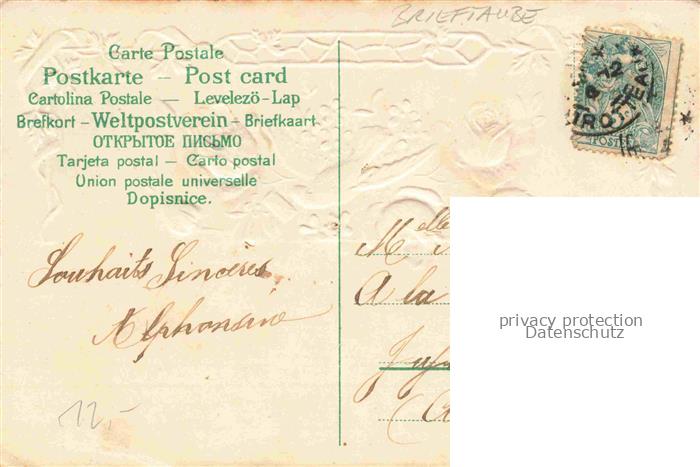 BRIEFTAUBE
Carte Postale
Postkarte — Post card
Cartolina Postale — Levelező-Lap
Brefkort - Weltpostverein - Briefkaart
ОТКРЫТОЕ ПИСЬМО
Tarjeta postal — Carto postal
Union postale universelle
Dopisnice.
POSTE
Souhaits Sincères
Alphonsine
Melle
A la
12,-
privacy protection
Datenschutz